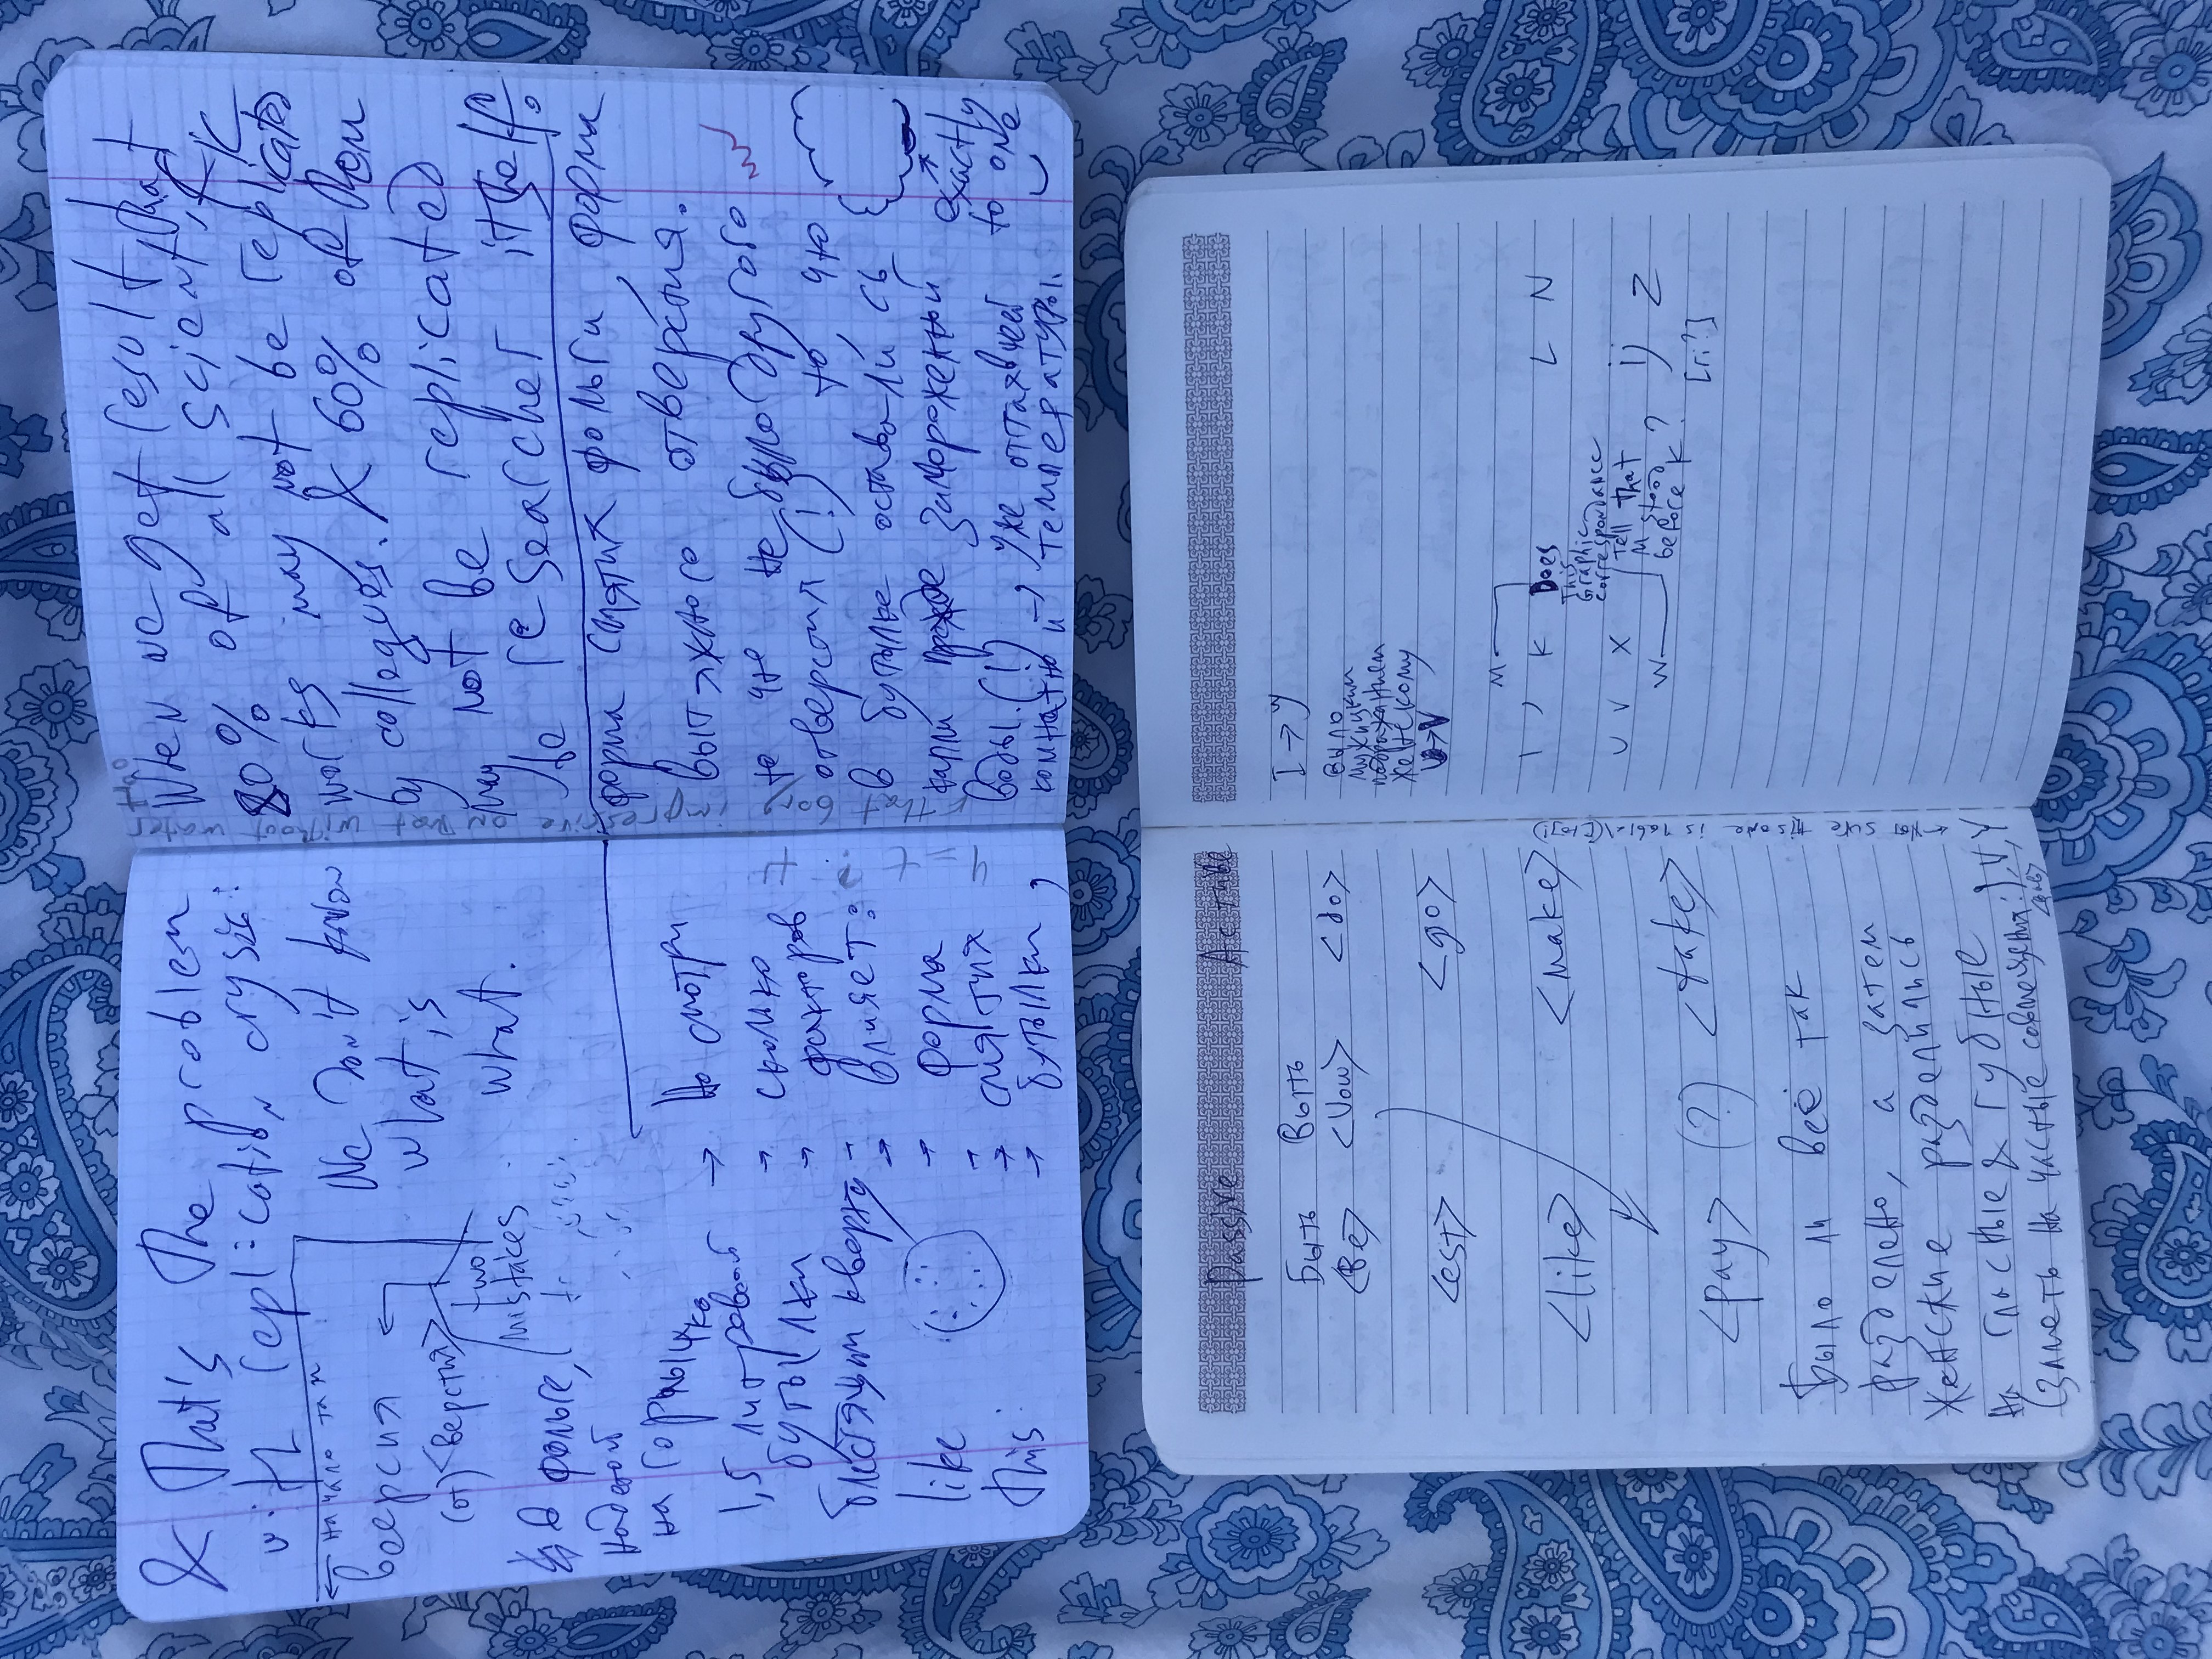 & That's The problem
with replication crysis:
← начало там
We Don't know
what is
what.
веерсия ←
(от) <верстия>
two
mistakes
в фольге,
надетой
на горлышко
1,5 литровой
бутылки
блестящим кверху
like
this:
→ Но смотри
→ сколько
→ факторов
→ влияет:
→ форма
→ смятия
→ бутылки,
When we get result, that
80% of all scientific
works may not be replicated
by collegues. & 60% of Them
may not be replicated
be researcher itself.
форма смятия фольги, форма
вытяжного отверстия.
то что не было другого
отверстия (!) то, что
в бутылке оставались
капли прежде замороженной
воды. (!) → уже оттаявшей
комнатной температуры.
exactly
to one
Passive Active
Быть Выть
<Be> <Vow> <do>
<est> <go>
<like> <make>
<pay> (?) <take>
Было ли всё так
разделено, а затем
женские разделились
на гласные & губные
(заметь на частые совмещения: J, V, Y
← Not sure this one is
I → Y
было
мужицким
подражанием
женскому
U→V
M
I J K Does L N
This
Graphic
correspondance
U V X Tell that ij Z
M stood
W before K?
[ri?]